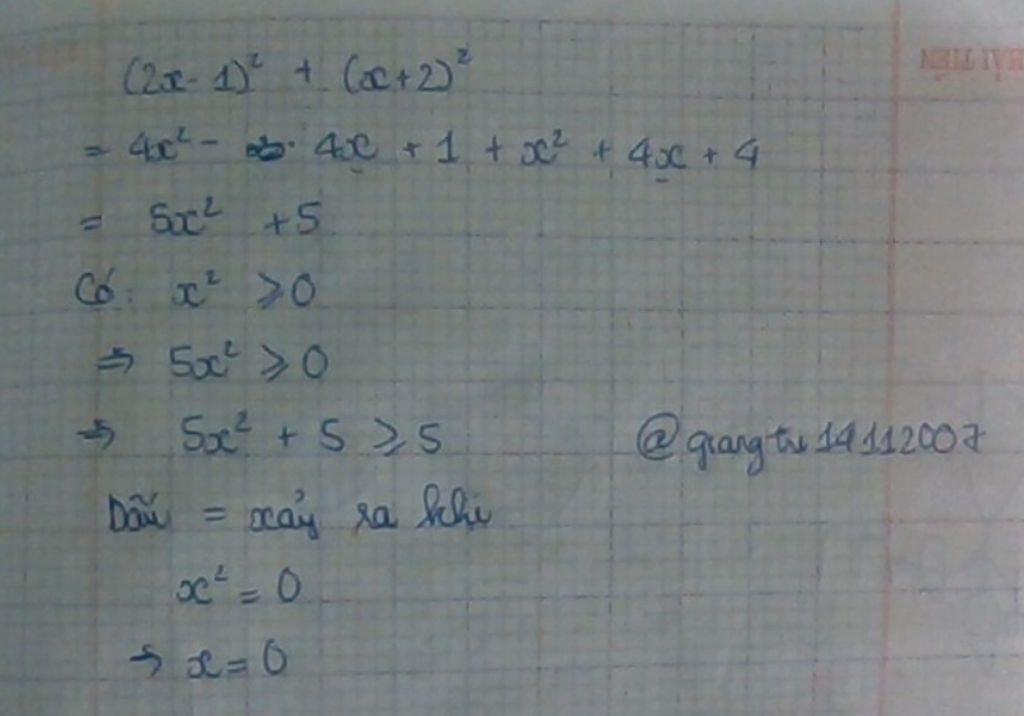 (2x - 1)² + (x+2)²
= 4x² - 4x + 1 + x² + 4x + 4
= 5x² + 5
Có: x² ⩾ 0
⇒ 5x² ⩾ 0
⇒ 5x² + 5 ⩾ 5
@giangtu14112007
Dấu = xảy ra khi
x² = 0
→ x = 0